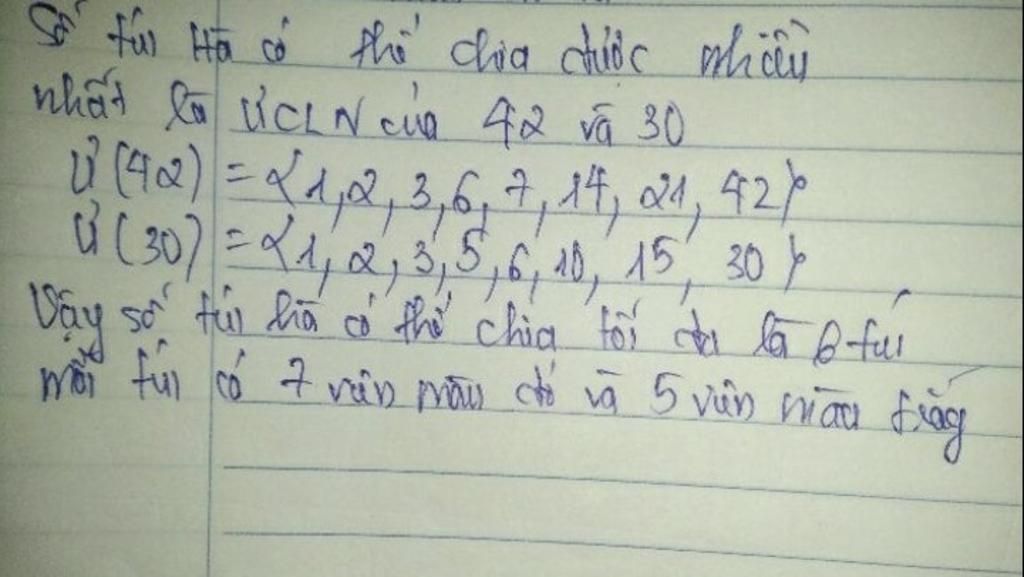 Số túi Hà có thể chia được nhiều
nhất là ƯCLN của 42 và 30
Ư(42) = {1, 2, 3, 6, 7, 14, 21, 42}
Ư(30) = {1, 2, 3, 5, 6, 10, 15, 30}
Vậy số túi hà có thể chia tối đa là 6 túi
mỗi túi có 7 viên màu đỏ và 5 viên màu trắng